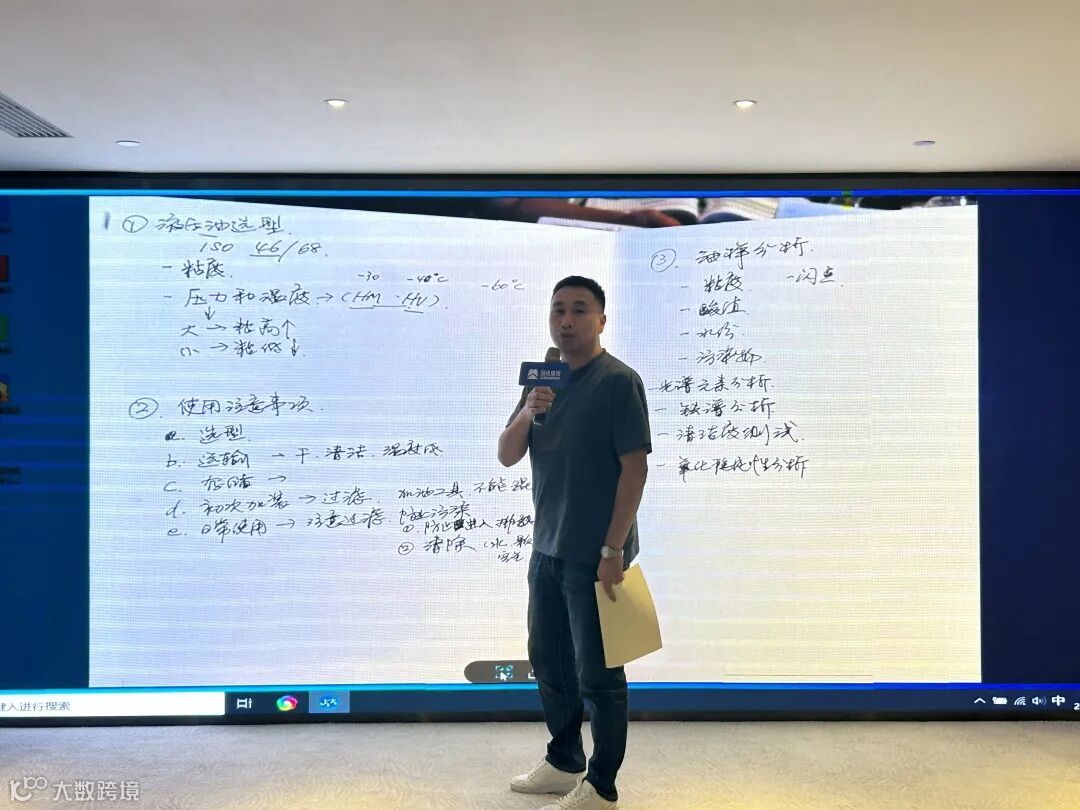 ① 液压油选型.
ISO 46/68.
- 粘度.
-30 -40°C -60°C
- 压力和温度→(HM · HV).
大 → 粘高↑
小 → 粘低↓
②. 使用注意事项.
a. 选型.
b. 运输 → 干.清洁.温度低
c. 存储 →
d. 初次加装 → 过滤. 加油工具.不能混
e. 日常使用 → 注意过滤. 防止污染
①. 防止进入
② 清除 (水.
③. 油样分析.
- 粘度. -闪点.
- 酸值
- 水份
- 污染物
- 光谱元素分析.
- 铁谱分析
- 清洁度测试.
- 氧化稳定性分析
键入进行搜索
中
大数跨境